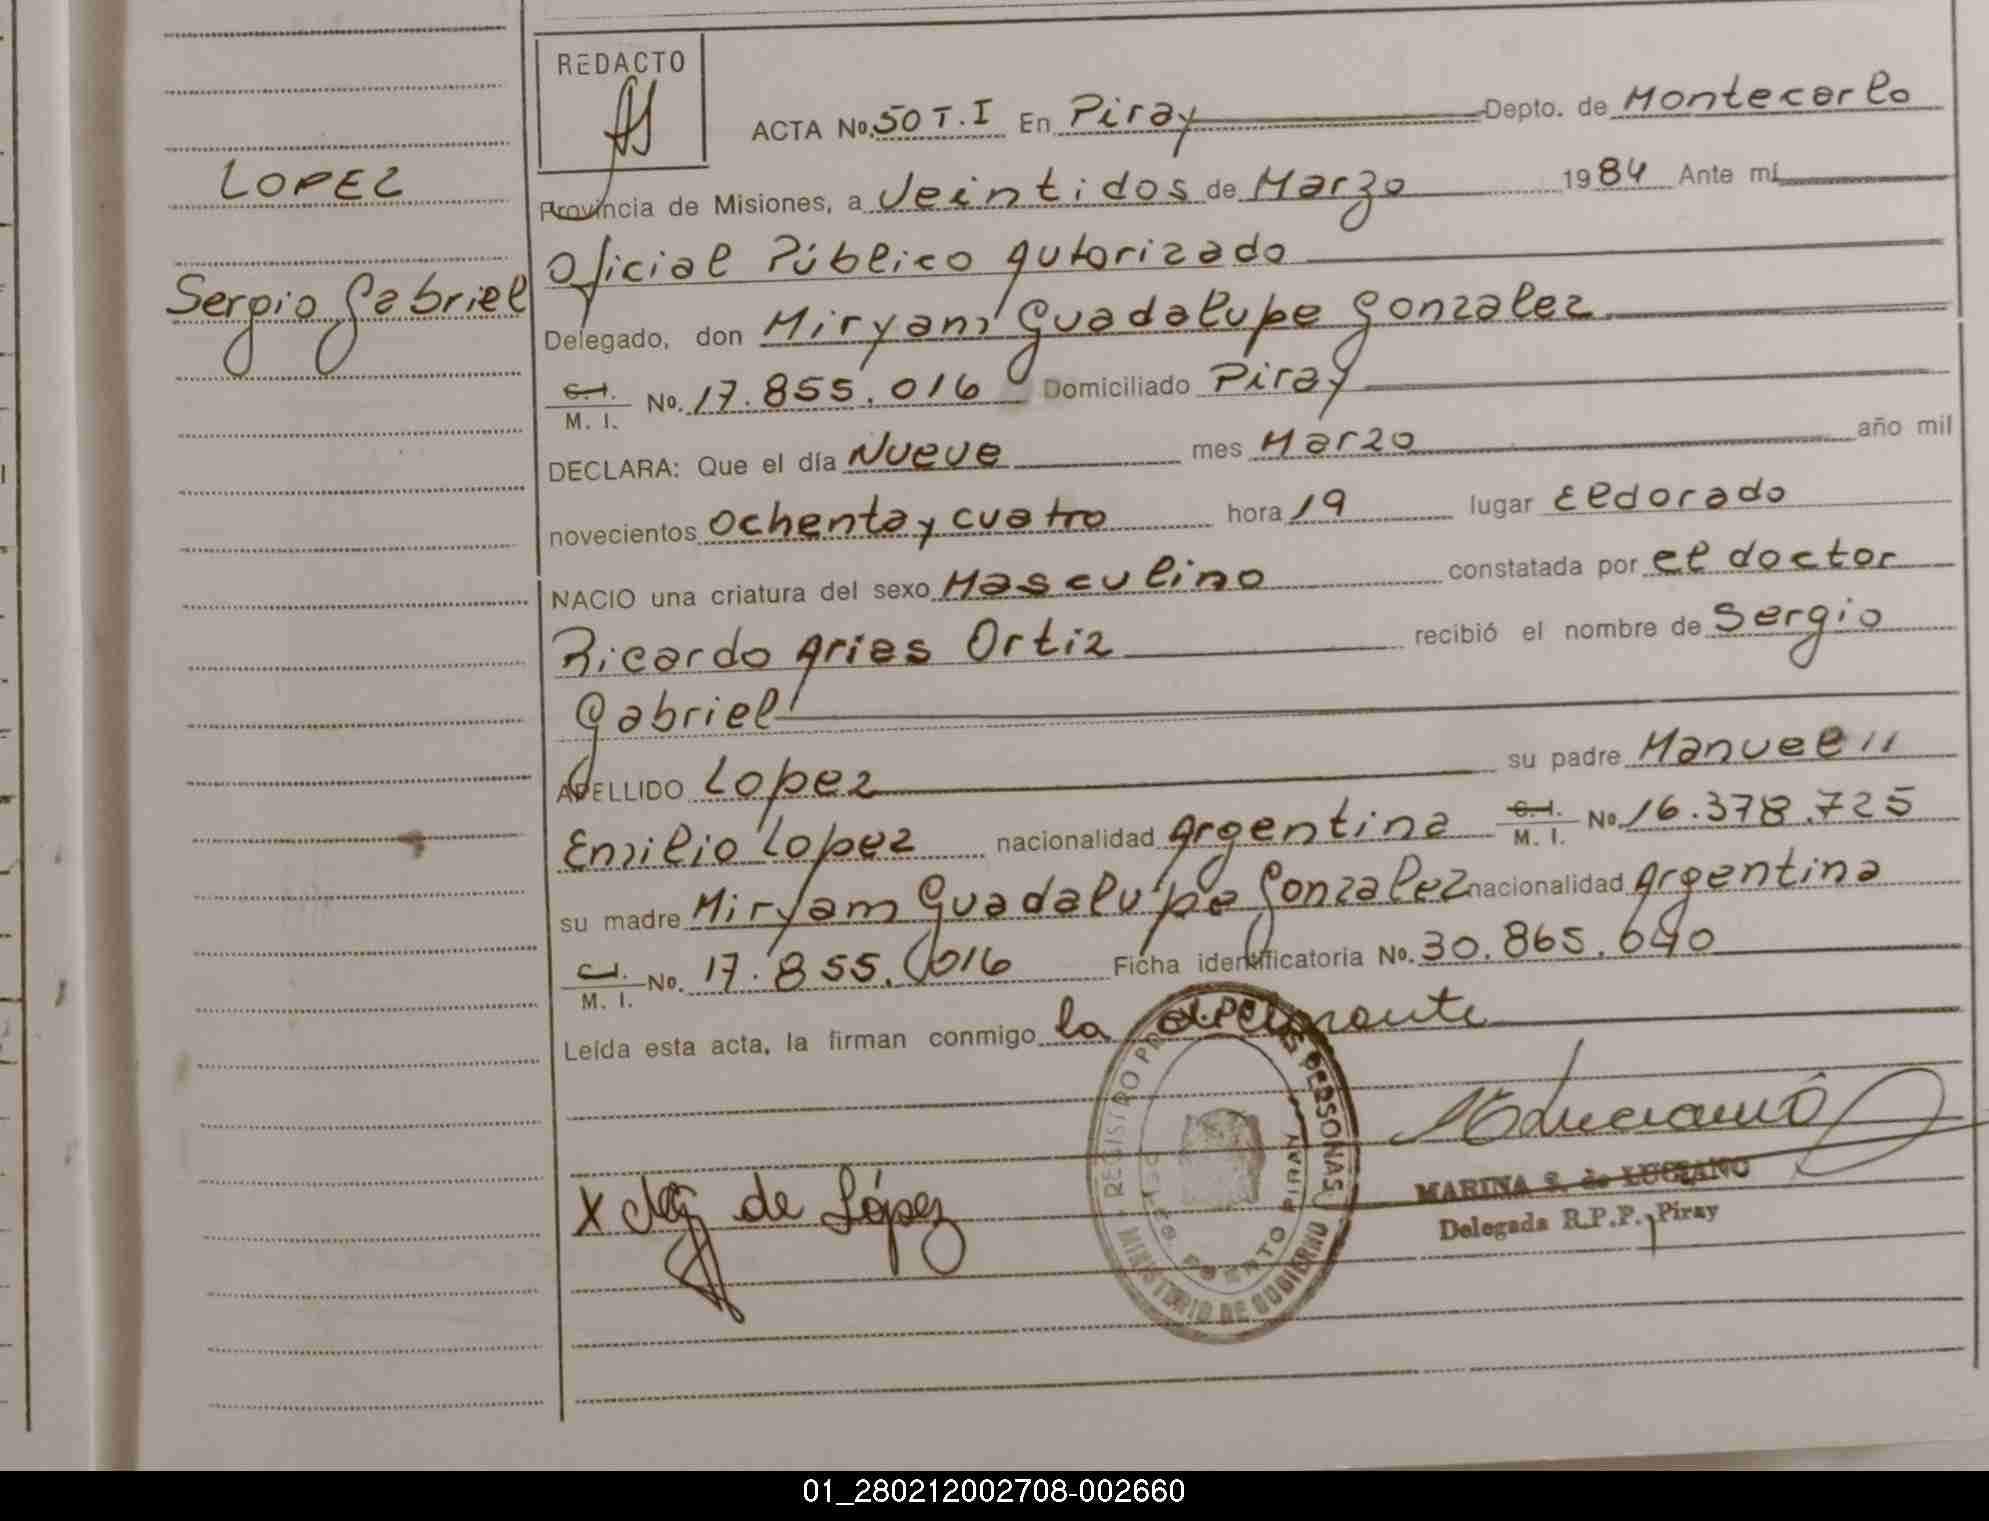 REDACTO
ACTA No. 50 T.I En Piray Depto. de Montecarlo
LOPEZ
Provincia de Misiones, a Veintidos de Marzo 1984 Ante mí
Oficial Público Autorizado
Sergio Gabriel
Delegado, don Miryam Guadalupe Gonzalez
C.I. M. I. No. 17.855.016 Domiciliado Piray
DECLARA: Que el día Nueve mes Marzo año mil
novecientos Ochenta y cuatro hora 19 lugar Eldorado
NACIO una criatura del sexo Masculino constatada por el doctor
Ricardo Aries Ortiz recibió el nombre de Sergio
Gabriel
APELLIDO Lopez su padre Manuel
Emilio Lopez nacionalidad Argentina C.I. M. I. No. 16.378.725
su madre Miryam Guadalupe Gonzalez nacionalidad Argentina
C.I. M. I. No. 17.855.016 Ficha identificatoria No. 30.865.640
Leída esta acta, la firman conmigo la declarante
REGISTRO PERSONAS
MINISTERIO DE GOBIERNO
PUERTO PIRAY
X de López
MARINA S. de LUCIANO
Delegada R.P.P. Piray
01_280212002708-002660